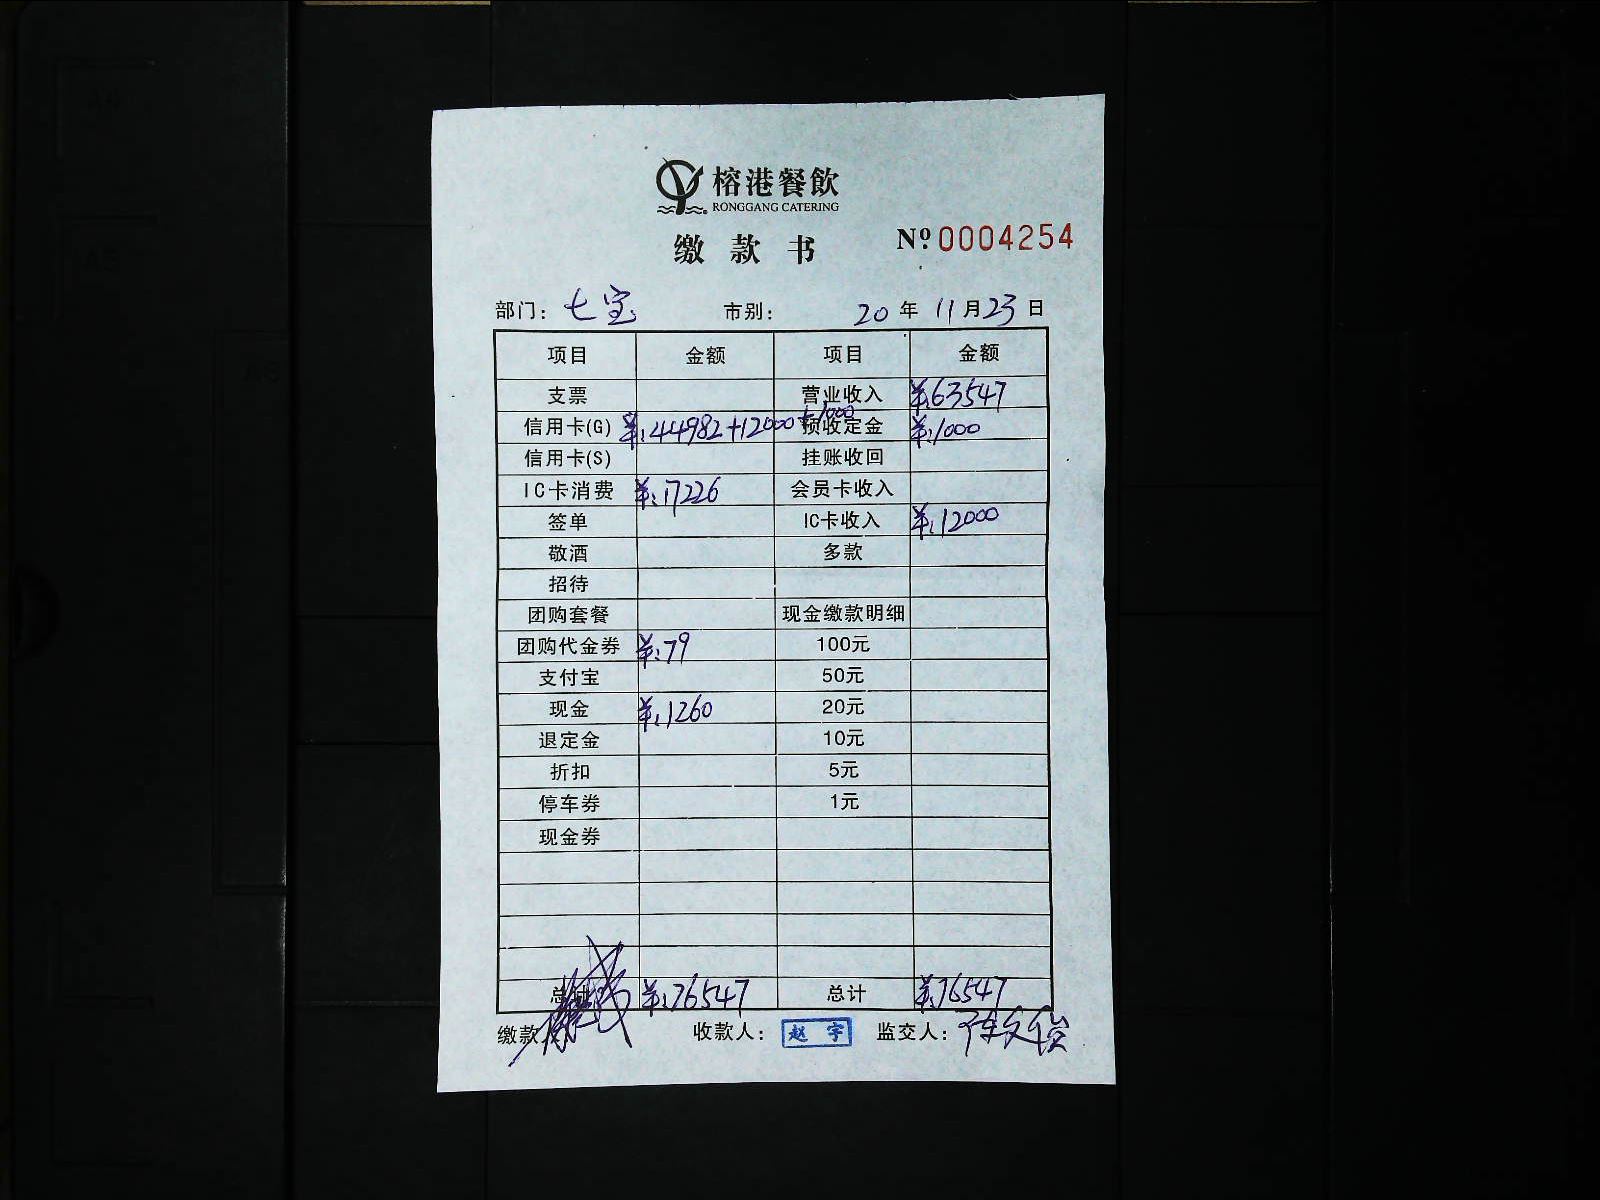 榕港餐飲
RONGGANG CATERING
缴款书
Nº 0004254
部门：七宝 市别： 20年11月23日
项目 金额 项目 金额
支票 营业收入 ¥:63547
信用卡(G) ¥:44982+12000+1000 预收定金 ¥:1000
信用卡(S) 挂账收回
IC卡消费 ¥:17226 会员卡收入
签单 IC卡收入 ¥:12000
敬酒 多款
招待
团购套餐 现金缴款明细
团购代金券 ¥:79 100元
支付宝 50元
现金 ¥:1260 20元
退定金 10元
折扣 5元
停车券 1元
现金券
总计 ¥:76547 总计 ¥:76547
缴款人： 收款人：赵宇 监交人：